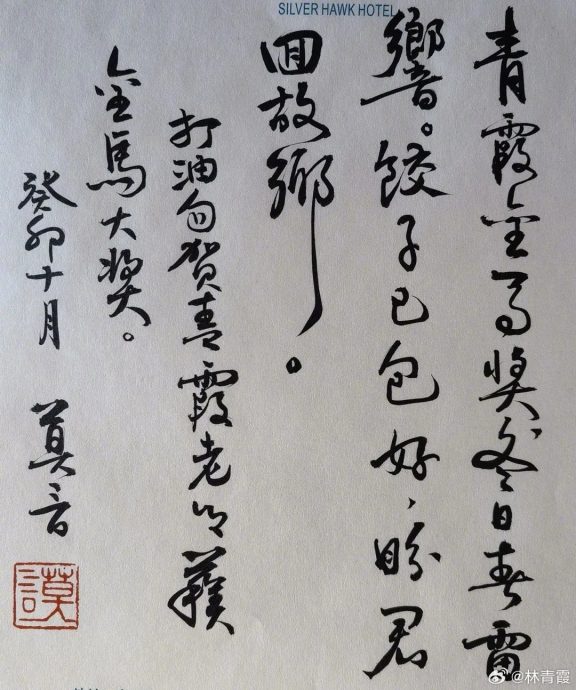 SILVER HAWK HOTEL
青霞金馬奬冬日春雷
響。餃子已包好，盼君
囬故鄉。
打油句賀青霞老鄉獲
金馬大奬。
癸卯十月 莫言
謨
@林青霞